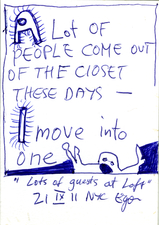 A LOT OF
PEOPLE COME OUT
OF THE CLOSET
THESE DAYS —
I move into
one
"Lots of guests at Loft"
21 IX 11 NYC